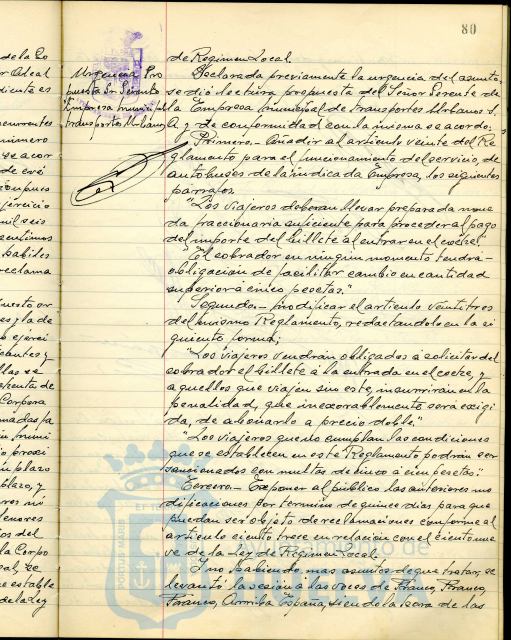 80
de Regimen Local.
Declarada previamente la urgencia del asunto,
se dió lectura propuesta del Señor Gerente de
la Empresa Municipal de Transportes Urbanos S.
A. y de conformidad con la misma se acordo:
Primero.- Añadir al articulo veinte del Re
glamento para el funcionamiento del servicio, de
autobuses de la indicada Empresa, los siguientes
parrafos.
"Los viajeros deberan llevar preparada mone
da fraccionaria suficiente para proceder al pago
del importe del billete al entrar en el coche."
"El cobrador en ningun momento tendrá
obligación de facilitar cambio en cantidad
superior á cinco pesetas."
Segundo.- Modificar el articulo veintitres
del mismo Reglamento, redactandolo en la si
guiente forma;
"Los viajeros vendrán obligados á solicitar del
cobrador el billete á la entrada en el coche, y
a quellos que viajen sin este, incurrirán en la
penalidad, que inexorablemente será exigi
da, de abonarlo a precio doble."
"Los viajeros que no cumplan las condiciones
que se establecen en este Reglamento podrán ser
sancionados con multas de cinco á cien pesetas."
Tercero.- Exponer al público las anteriores mo
dificaciones por termino de quince dias para que
puedan ser objeto de reclamaciones conforme al
articulo ciento trece en relación con el ciento nue
ve de la Ley de Regimen Local.
Y no habiendo mas asuntos de que tratar, se
levantó la sesión á las voces de Franco, Franco,
Franco, Arriba España, siendo la hora de las
Urgencia Pro
puesta Sr. Gerente
Empresa municipal
transportes Urbanos
de la Co
r Alcal
diente es
ncurrentes
numero
se acor
de exi
jercicio
mil seis
centimos
habiles
reclama
uesto or
es y la de
o ejerci
cantes y
llas se
Corpora
nadas pa
plazo
blazo, y
enores
os del
la Corpo
e estable
de la Ley
Ayuntamiento de